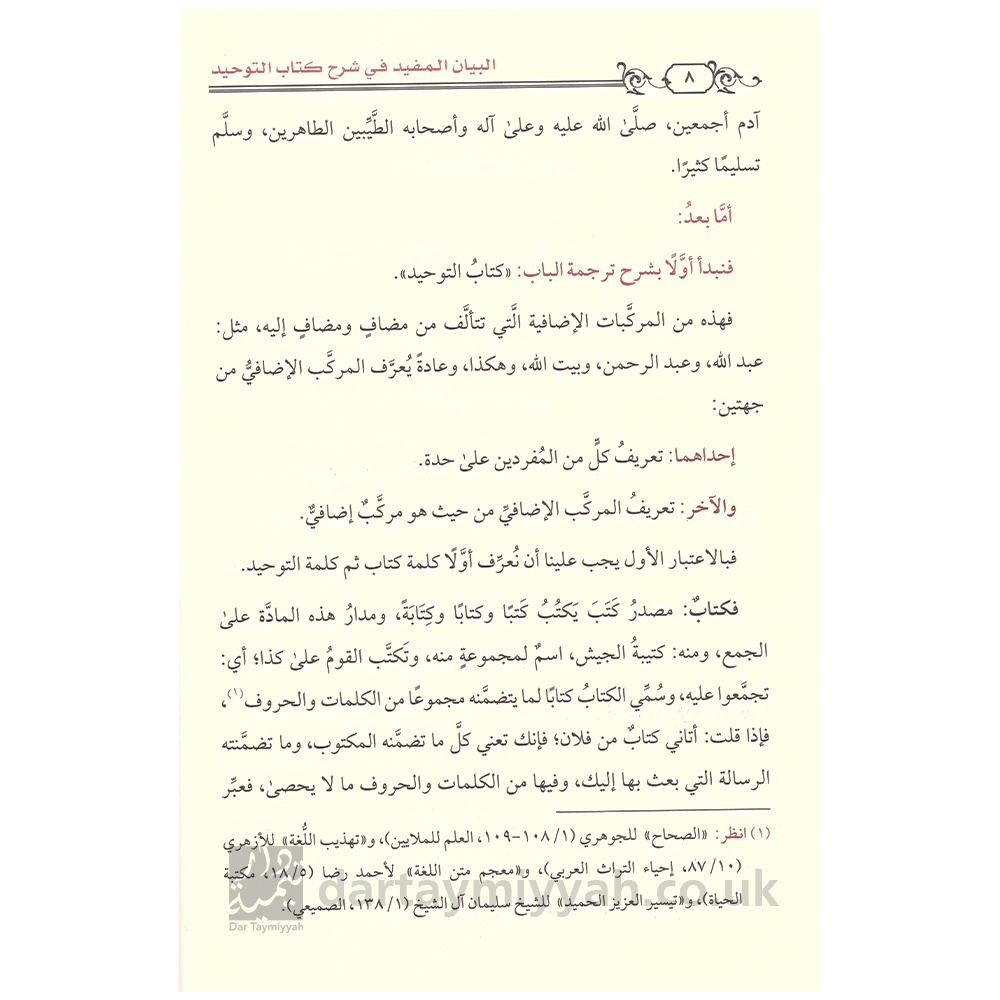 ٨
البيان المفيد في شرح كتاب التوحيد
آدم أجمعين، صلَّىٰ الله عليه وعلىٰ آله وأصحابه الطَّيِّبين الطاهرين، وسلَّم
تسليمًا كثيرًا.
أمَّا بعدُ:
فنبدأ أوَّلًا بشرح ترجمة الباب: «كتابُ التوحيد».
فهذه من المركَّبات الإضافية الَّتي تتألَّف من مضافٍ ومضافٍ إليه، مثل:
عبد الله، وعبد الرحمن، وبيت الله، وهكذا، وعادةً يُعرَّف المركَّب الإضافيُّ من
جهتين:
إحداهما: تعريفُ كلٍّ من المُفردين علىٰ حدة.
والآخر: تعريفُ المركَّب الإضافيِّ من حيث هو مركَّبٌ إضافيٌّ.
فبالاعتبار الأول يجب علينا أن نُعرِّف أوَّلًا كلمة كتاب ثم كلمة التوحيد.
فكتابٌ: مصدرُ كَتَبَ يَكتُبُ كَتبًا وكتابًا وكِتَابَةً، ومدارُ هذه المادَّة علىٰ
الجمع، ومنه: كتيبةُ الجيش، اسمٌ لمجموعةٍ منه، وتَكتَّب القومُ علىٰ كذا؛ أي:
تجمَّعوا عليه، وسُمِّي الكتابُ كتابًا لما يتضمَّنه مجموعًا من الكلمات والحروف(١)،
فإذا قلت: أتاني كتابٌ من فلان؛ فإنك تعني كلَّ ما تضمَّنه المكتوب، وما تضمَّنته
الرسالة التي بعث بها إليك، وفيها من الكلمات والحروف ما لا يحصىٰ، فعبِّر
(١) انظر: «الصحاح» للجوهري (١/ ١٠٨-١٠٩، العلم للملايين)، و«تهذيب اللُّغة» للأزهري
(١٠/ ٨٧، إحياء التراث العربي)، و«معجم متن اللغة» لأحمد رضا (٥/ ١٨، مكتبة
الحياة)، و«تيسير العزيز الحميد» للشيخ سليمان آل الشيخ (١/ ١٣٨، الصميعي).
dartaymiyyah.co.uk
Dar Taymiyyah